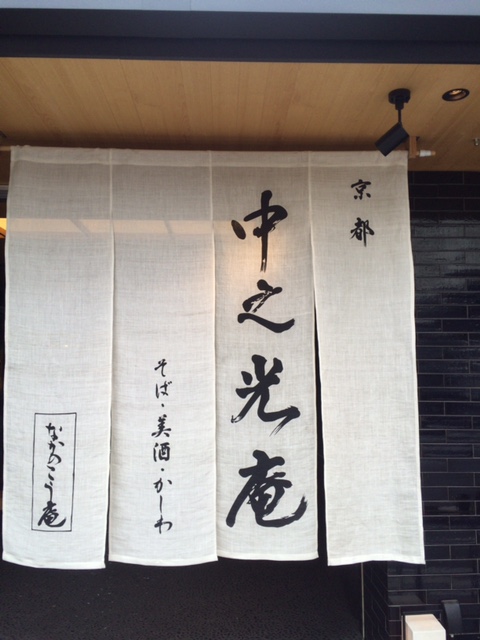 京都
中之光庵
そば・美酒・かしわ
なかのこう庵